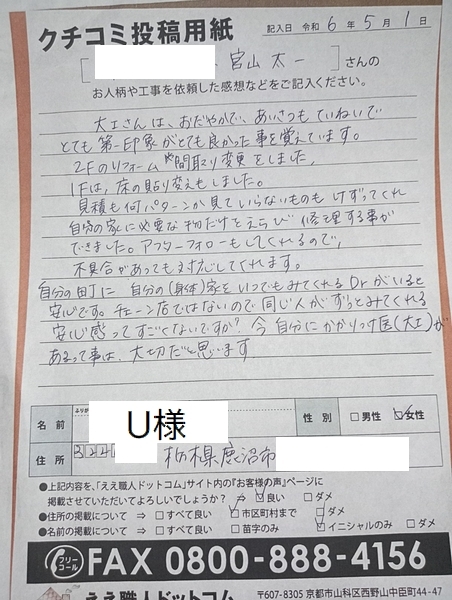 クチコミ投稿用紙
記入日 令和 6 年 5 月 1 日
宮山 太一 さんの
お人柄や工事を依頼した感想などをご記入ください。
大工さんは、おだやかで、あいさつもていねいで
とても第一印象がとても良かった事を覚えています。
2Fのリフォーム 間取り変更をしました。
1Fは、床の貼り変えもしました。
見積も何パターンか見ていらないものもけずってくれ
自分の家に必要な物だけをえらび 修理する事が
できました。アフターフォローもしてくれるので、
不具合があっても対応してくれます。
自分の町に 自分の(身体)家をいつでもみてくれるDrがいると
安心です。チェーン店ではないので同じ人がずっとみてくれる
安心感ってすごくないですか? 今 自分にかかりつけ医(大工)が
あるって事は、大切だと思います
名前 U様 性別 □男性 ☑女性
住所 322 栃木県鹿沼市
●上記内容を、「ええ職人ドットコム」サイト内の『お客様の声』ページに
掲載させていただいてよろしいでしょうか? ⇒ ☑良い □ダメ
●住所の掲載について ⇒ □すべて良い ☑市区町村まで □ダメ
●名前の掲載について ⇒ □すべて良い □苗字のみ ☑イニシャルのみ □ダメ
フリーコール FAX 0800-888-4156
ええ職人ドットコム 〒607-8305 京都市山科区西野山中臣町44-47